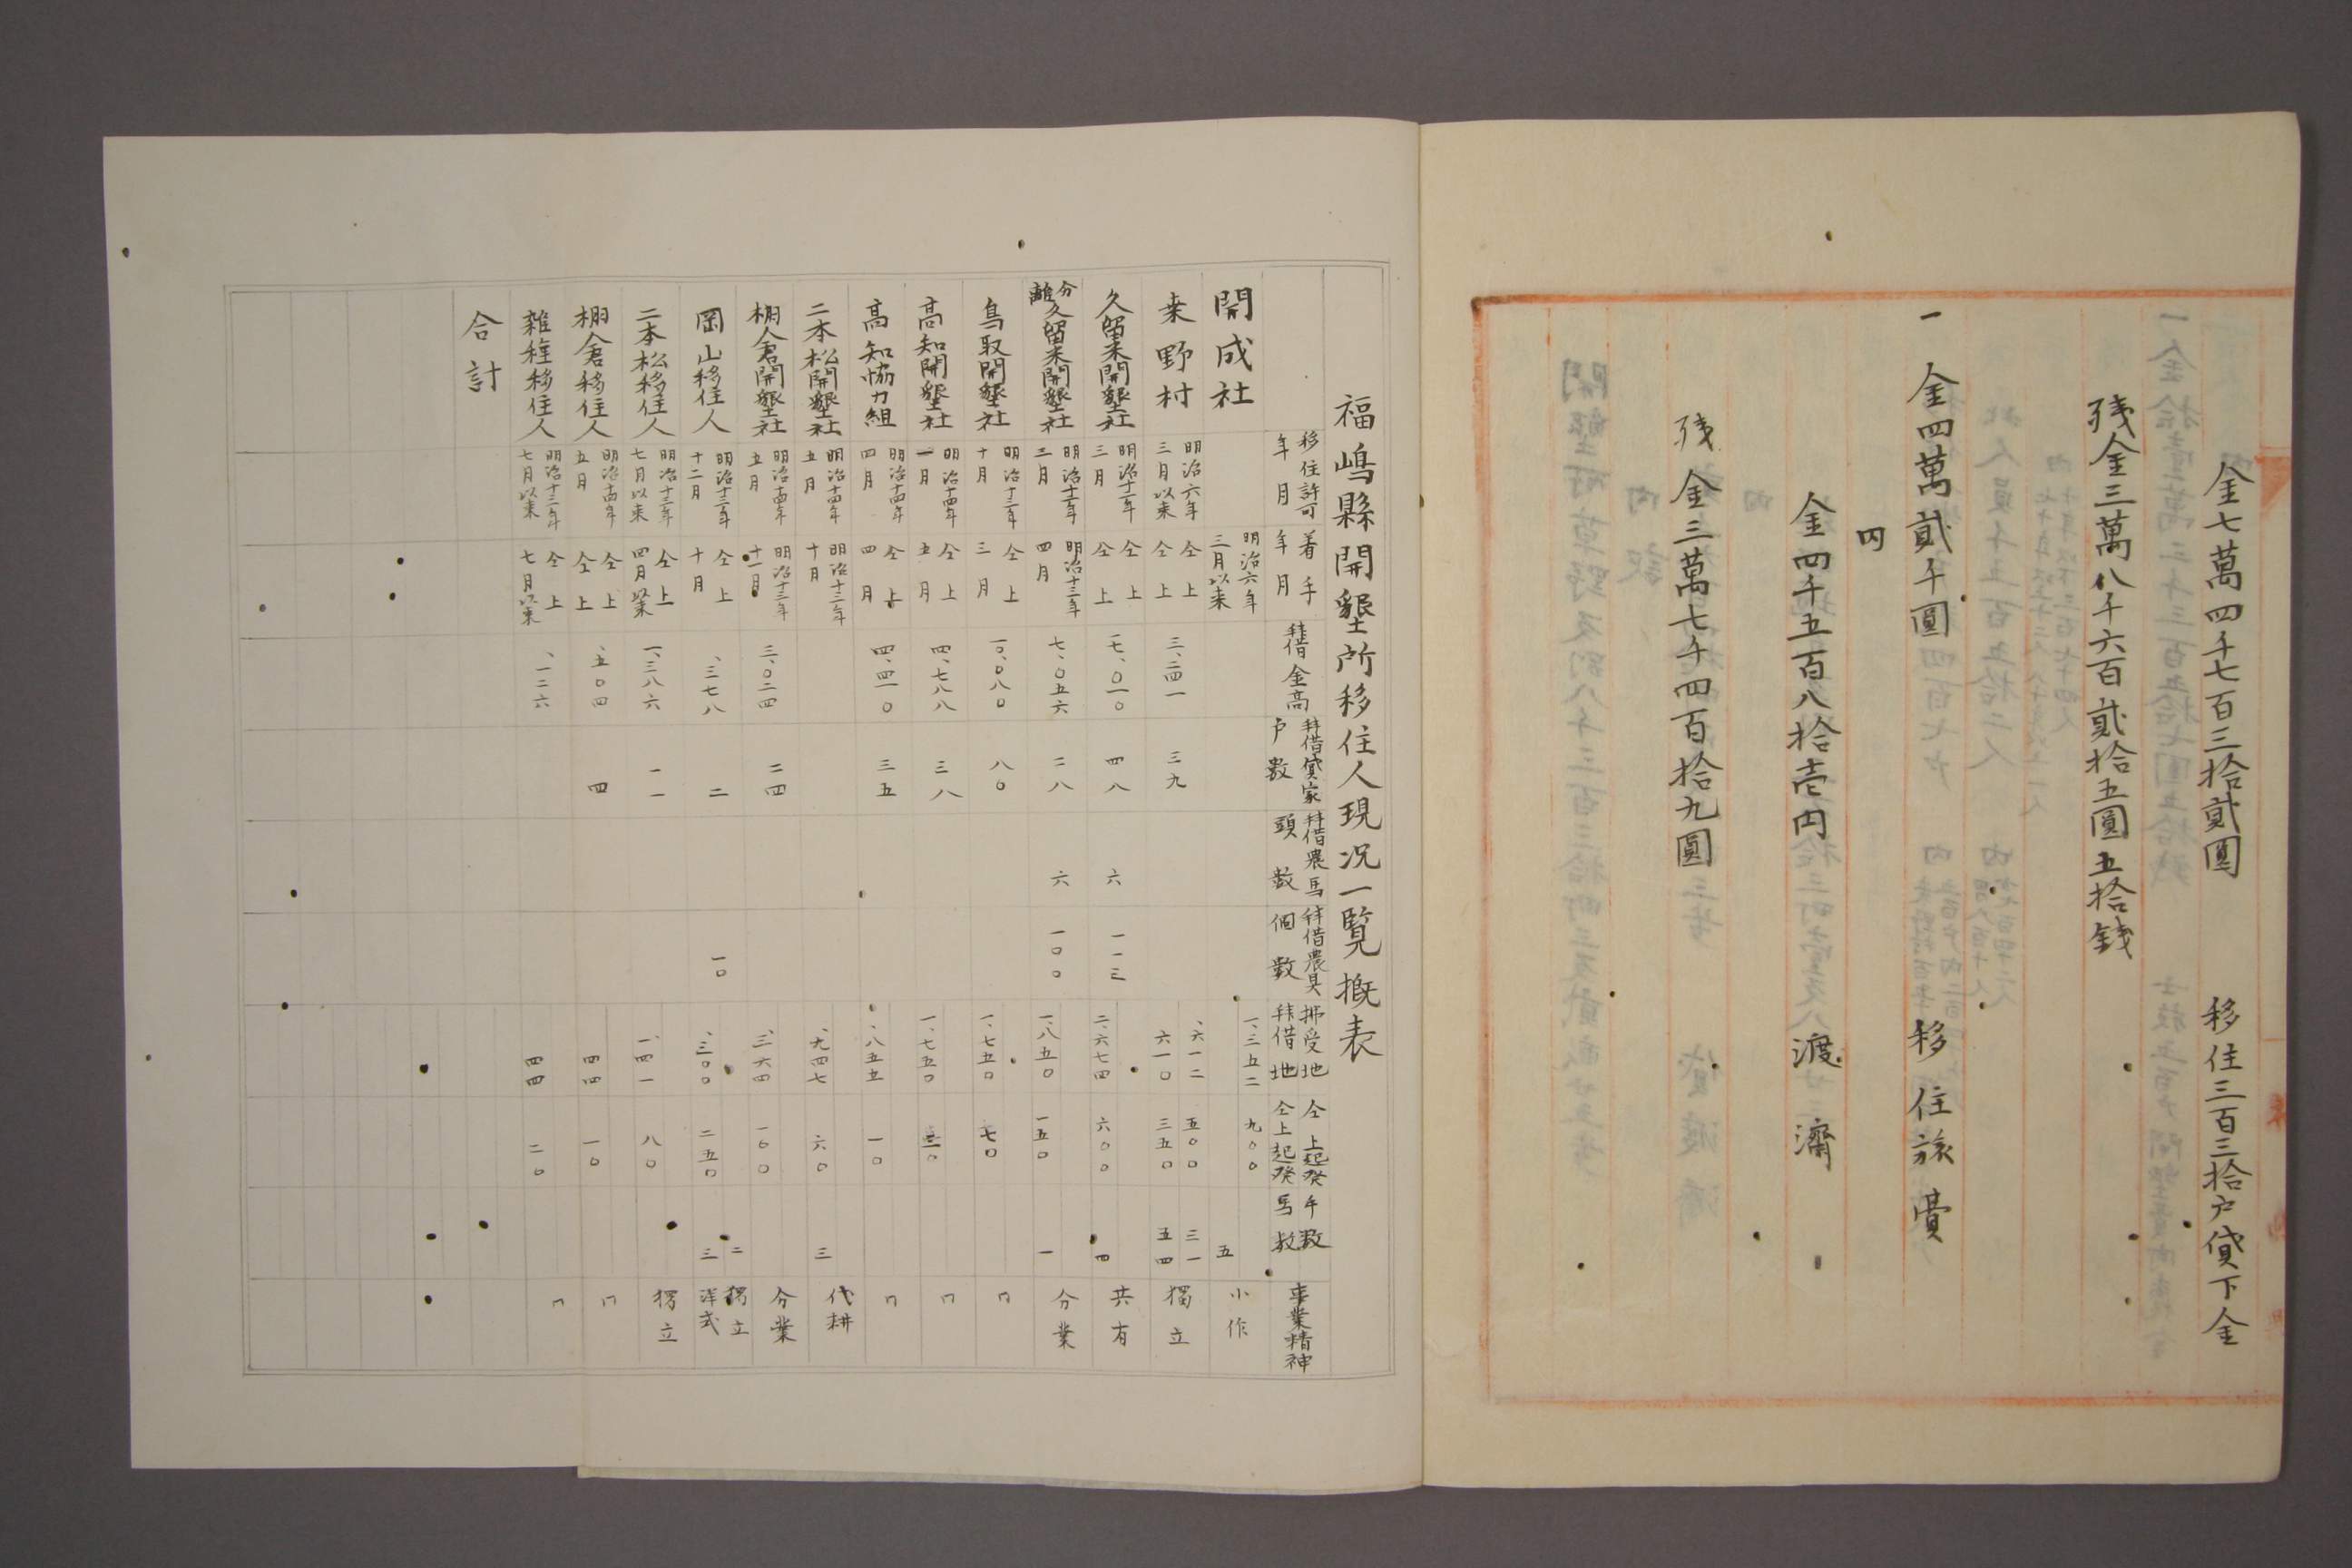 金七萬四千七百三拾貳圓 移住三百三拾戸貸下金
残金三萬八千六百貳拾五圓五拾錢
一 金四萬貳千圓 移住旅費
内
金四千五百八拾壱円 渡濟
残金三萬七千四百拾九圓
福嶋縣開墾所移住人現况一覧概表
移住許可年月 着手年月 拜借金高 拜借貸家戸數 拜借農馬頭數 拜借農具個數 拂受地拜借地 仝上起発仝上起発 牛数馬数 事業精神
開成社 明治六年三月以来 一、三五二 九〇〇 五 小作
桒野村 明治六年三月以来 仝上仝上 三、二四一 三九 、六一二六一〇 五〇〇三五〇 三一五四 獨立
久留米開墾社 明治十一年三月 仝上仝上 一七、〇一〇 四八 六 一一三 二、六七四 六〇〇 四 共有
分離久留米開墾社 明治十二年三月 明治十三年四月 七、〇五六 二八 六 一〇〇 一、八五〇 一五〇 一 分業
鳥取開墾社 明治十三年十月 仝上三月 一〇、〇八〇 八〇 一、七五〇 七〇 〃
高知開墾社 明治十四年一月 仝上五月 四、七八八 三八 一、七五〇 〃
高知協力組 明治十四年四月 仝上四月 四、四一〇 三五 、八五五 一〇 〃
二本松開墾社 明治十四年五月 明治十三年十月 、九四七 六〇 三 代耕
棚倉開墾社 明治十四年五月 明治十三年十一月 三、〇二四 二四 、三六四 一〇〇 分業
岡山移住人 明治十三年十二月 仝上十月 、三七八 二 一〇 、三〇〇 二五〇 二三 獨立洋式
二本松移住人 明治十三年七月以来 仝上四月以来 一、三八六 一一 、一四一 八〇 獨立
棚倉移住人 明治十四年五月 仝上仝上 、五〇四 四 四四 一〇 〃
雑種移住人 明治十三年七月以来 仝上七月以来 、一二六 四四 二〇 〃
合計